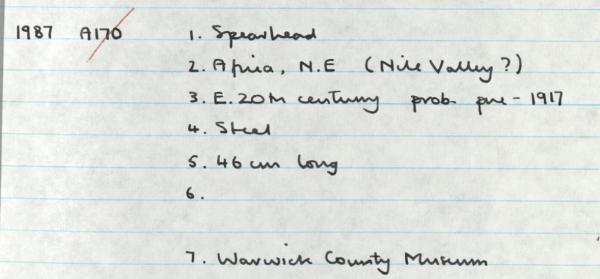 1987 A170 1. Spearhead
2. Africa, N.E (Nile Valley?)
3. E. 20th century prob. pre-1917
4. Steel
5. 46 cm long
6.
7. Warwick County Museum